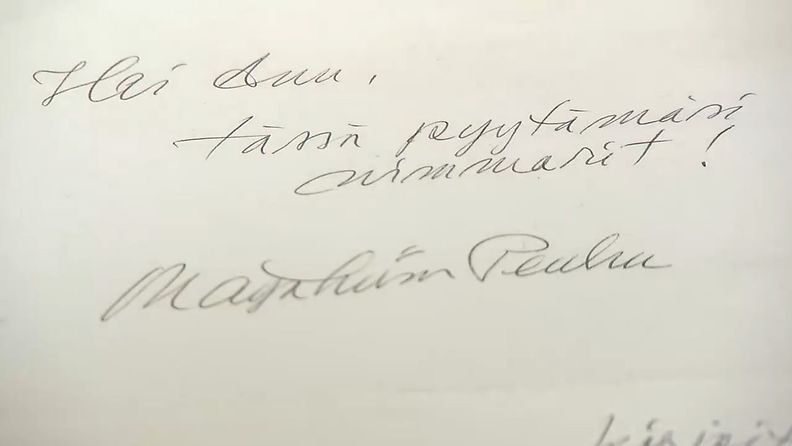 Hei Anu,
tässä pyytämäsi
nimmarit!
Maija Liisa Peuhu